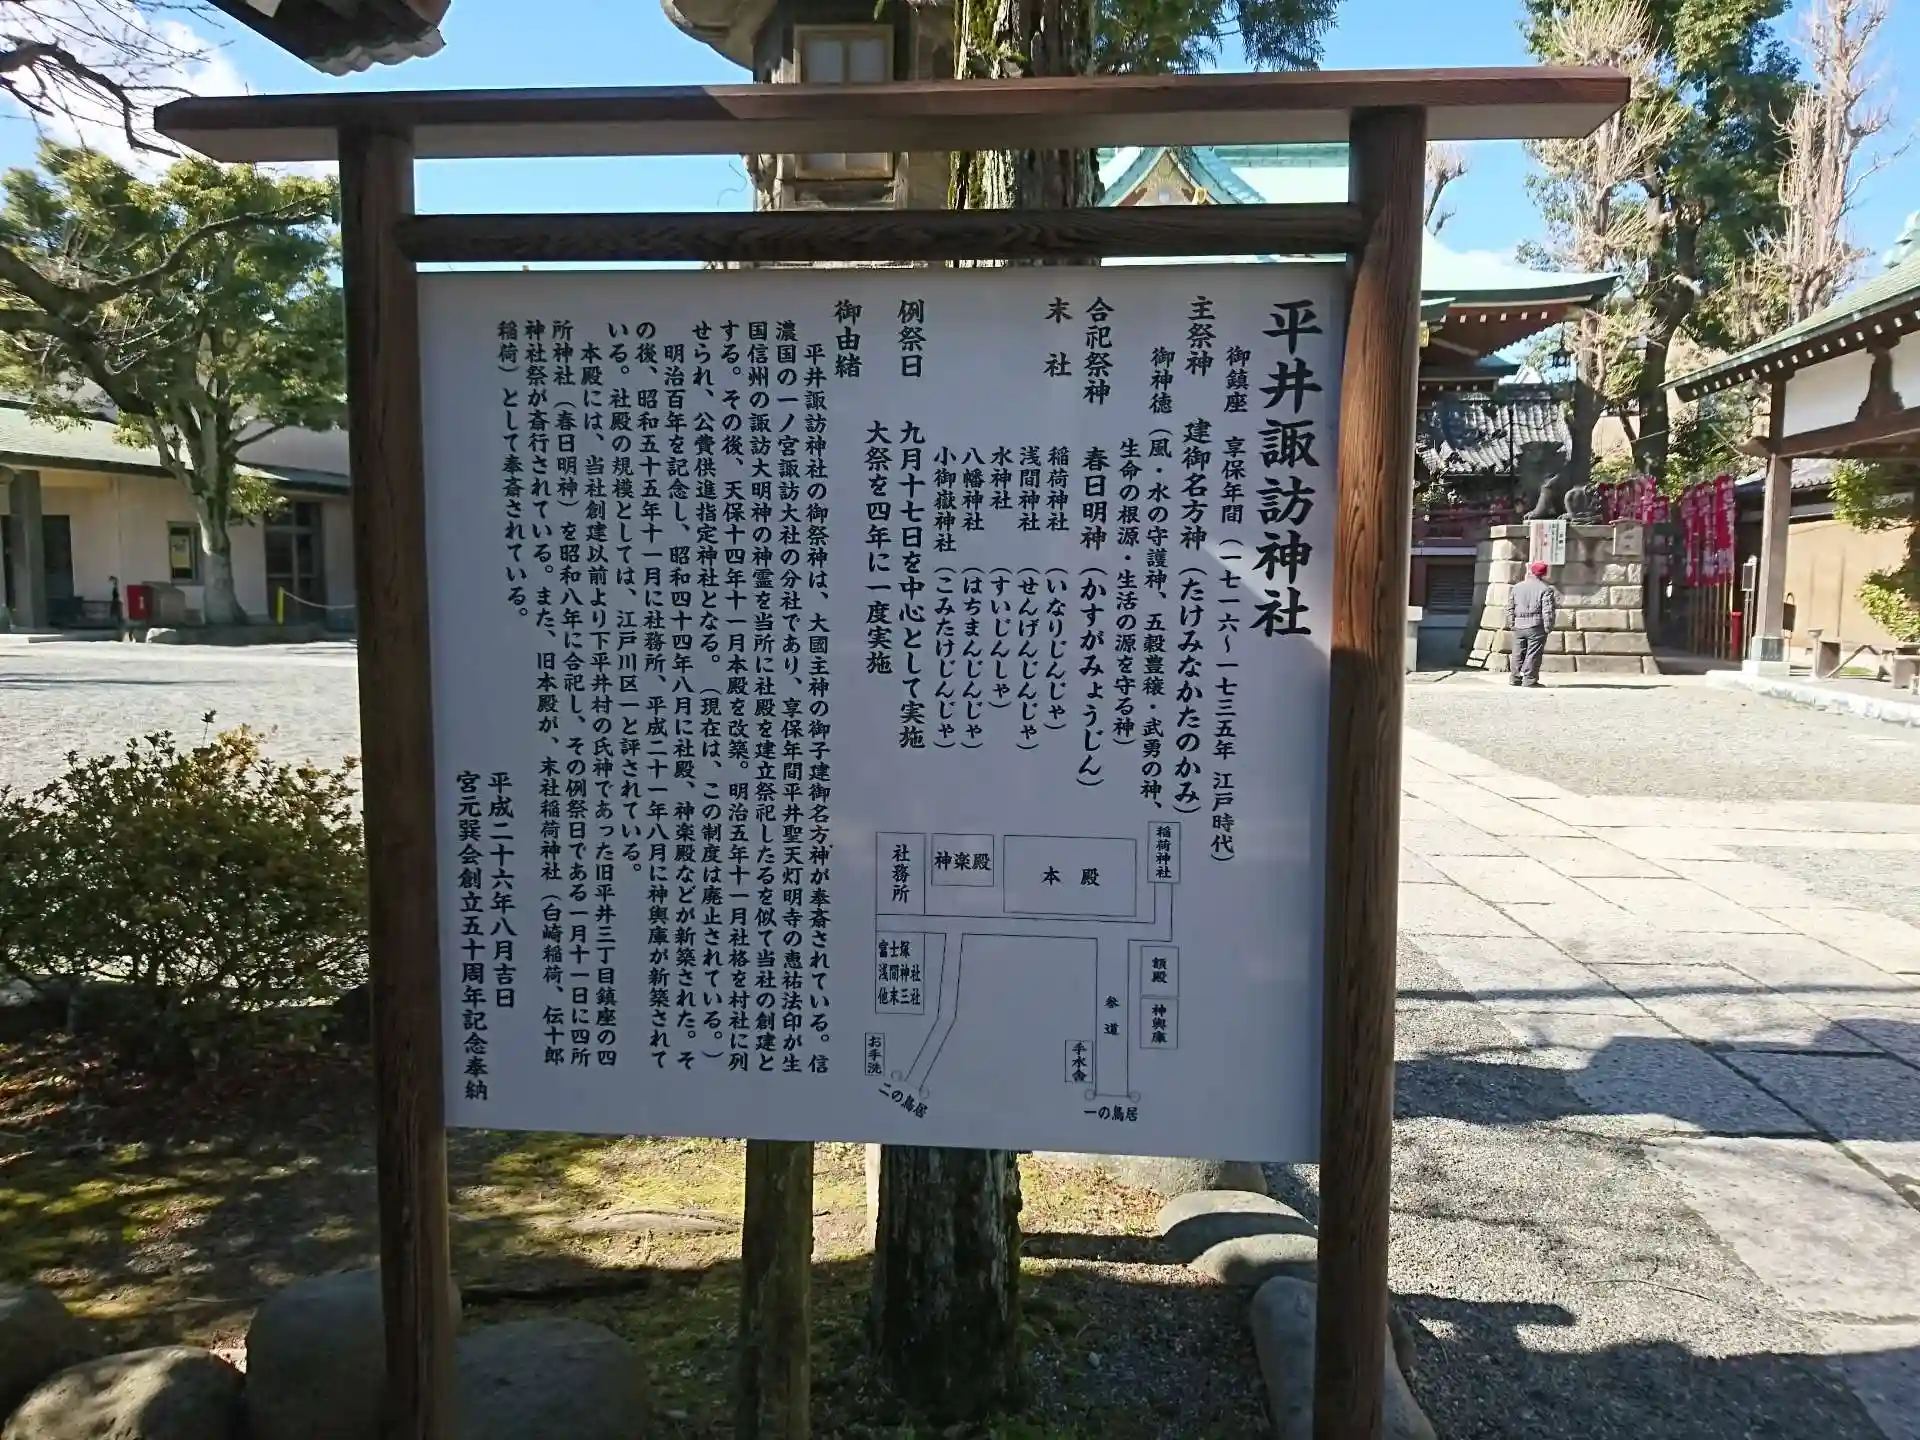 平井諏訪神社
御鎮座 享保年間（一七一六〜一七三五年 江戸時代）
主祭神 建御名方神（たけみなかたのかみ）
御神徳（風・水の守護神、五穀豊穣・武勇の神、
生命の根源・生活の源を守る神）
合祀祭神 春日明神（かすがみょうじん）
末社 稲荷神社（いなりじんじゃ）
浅間神社（せんげんじんじゃ）
水神社（すいじんしゃ）
八幡神社（はちまんじんじゃ）
小御嶽神社（こみたけじんじゃ）
例祭日 九月十七日を中心として実施
大祭を四年に一度実施
御由緒
平井諏訪神社の御祭神は、大國主神の御子建御名方神が奉斎されている。信
濃国の一ノ宮諏訪大社の分社であり、享保年間平井聖天灯明寺の恵祐法印が生
国信州の諏訪大明神の神霊を当所に社殿を建立祭祀したるを似て当社の創建と
する。その後、天保十四年十一月本殿を改築。明治五年十一月社格を村社に列
せられ、公費供進指定神社となる。（現在は、この制度は廃止されている。）
明治百年を記念し、昭和四十四年八月に社殿、神楽殿などが新築された。そ
の後、昭和五十五年十一月に社務所、平成二十一年八月に神輿庫が新築されて
いる。社殿の規模としては、江戸川区一と評されている。
本殿には、当社創建以前より下平井村の氏神であった旧平井三丁目鎮座の四
所神社（春日明神）を昭和八年に合祀し、その例祭日である一月十一日に四所
神社祭が斎行されている。また、旧本殿が、末社稲荷神社（白崎稲荷、伝十郎
稲荷）として奉斎されている。
平成二十六年八月吉日
宮元巽会創立五十周年記念奉納
稲荷神社
本殿
神楽殿
社務所
額殿
神輿庫
参道
手水舎
一の鳥居
富士塚
浅間神社
他末三社
お手洗
二の鳥居